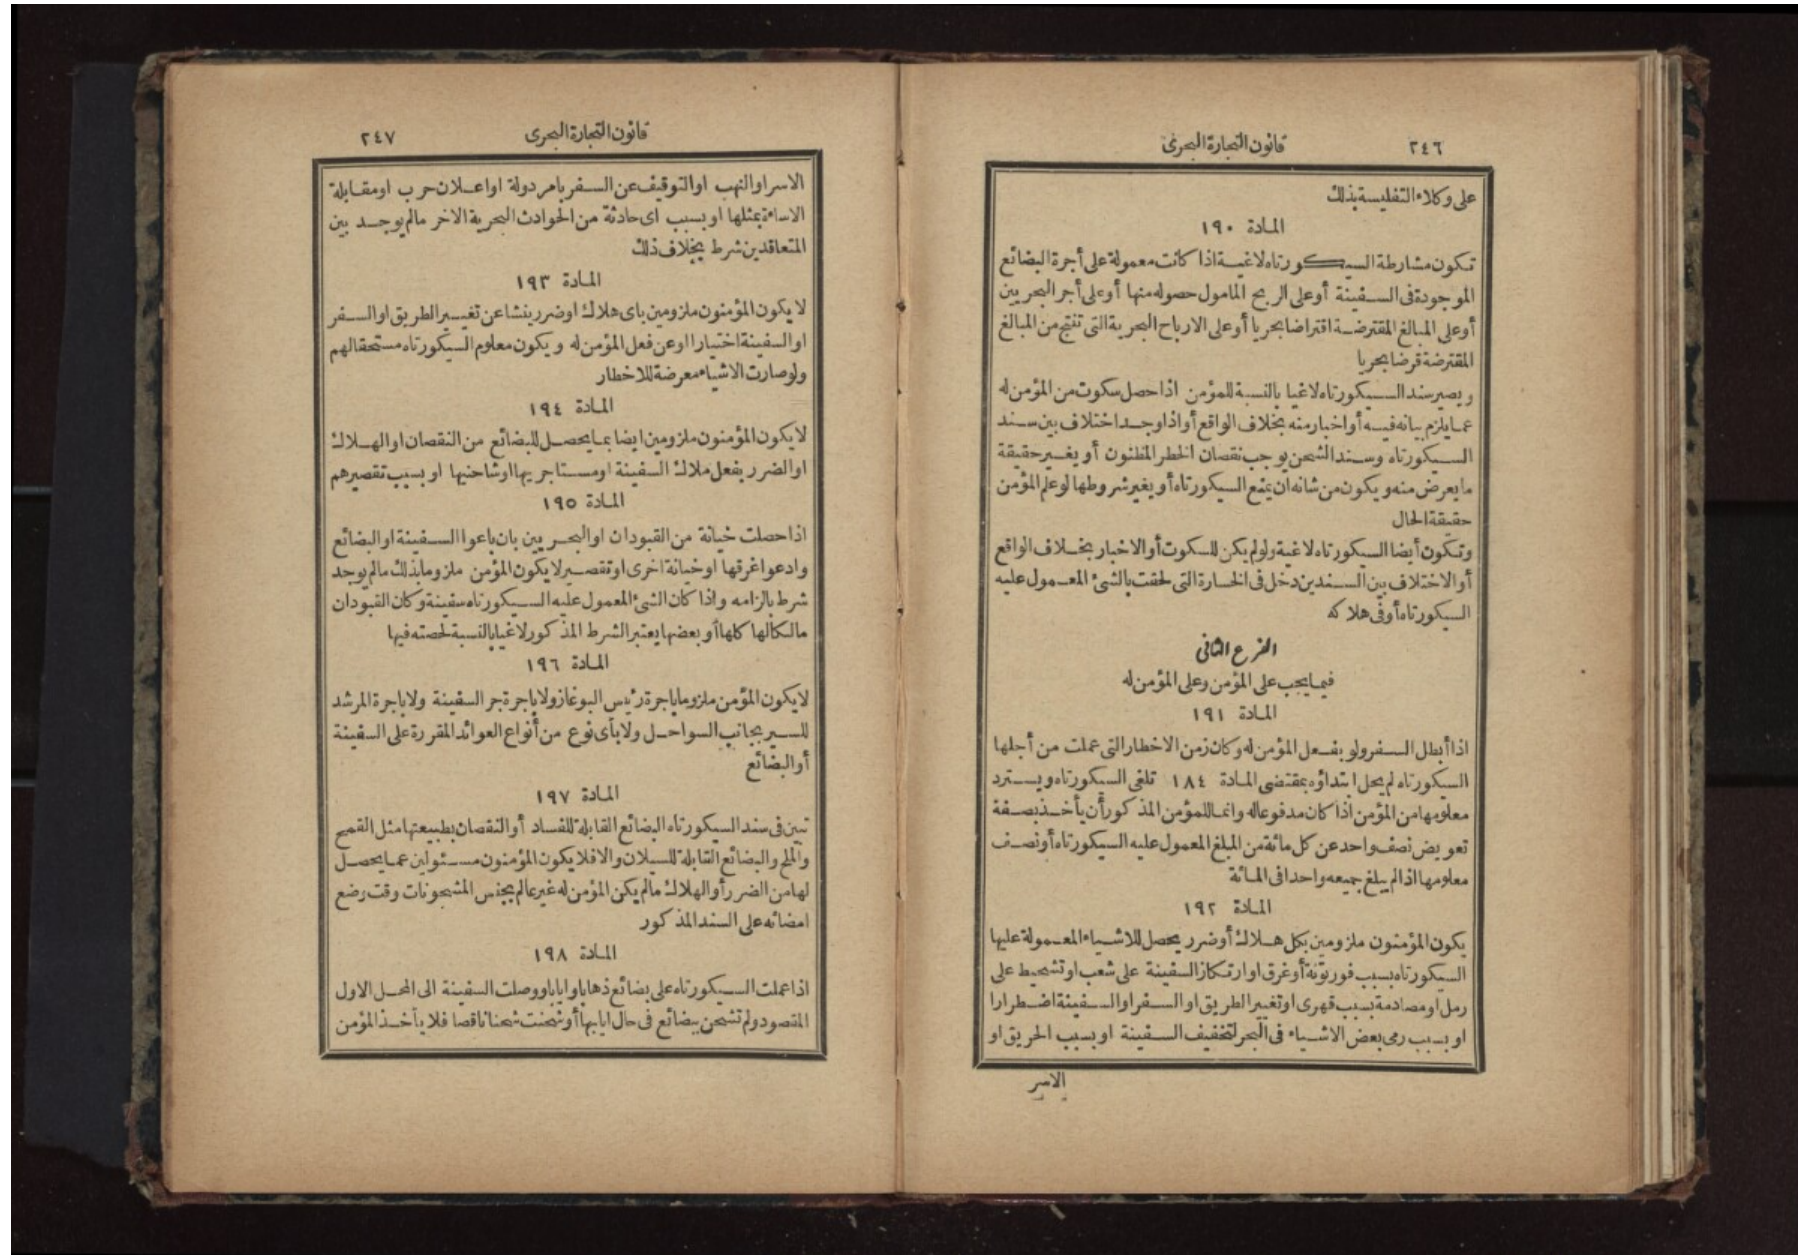 ٢٤٦
قانون التجارة البحرى
على وكلاء التفليسة بذلك
المادة ١٩٠
تكون مشارطة السيكورتاه لاغية اذا كانت معمولة على أجرة البضائع
الموجودة فى السفينة أوعلى الربح المامول حصوله منها أوعلى أجر البحريين
أوعلى المبالغ المقترضة اقتراضا بحريا أوعلى الارباح البحرية التى تنتج من المبالغ
المقترضة قرضا بحريا
ويصير سند السيكورتاه لاغيا بالنسبة للمؤمن اذا حصل سكوت من المؤمن له
عما يلزم بيانه فيه أو اخبار منه بخلاف الواقع أو اذا وجد اختلاف بين سند
السيكورتاه وسند الشحن يوجب نقصان الخطر المظنون أو يغير حقيقة
ما يعرض منه ويكون من شانه ان يمنع السيكورتاه أو يغير شروطها لو علم المؤمن
حقيقة الحال
وتكون أيضا السيكورتاه لاغية ولو لم يكن للسكوت أو الاخبار بخلاف الواقع
أو الاختلاف بين السندين دخل فى الخسارة التى لحقت بالشئ المعمول عليه
السيكورتاه أو فى هلاكه
الفرع الثانى
فيما يجب على المؤمن وعلى المؤمن له
المادة ١٩١
اذا أبطل السفر ولو بفعل المؤمن له وكان زمن الاخطار التى عملت من أجلها
السيكورتاه لم يحل ابتداؤه بمقتضى المادة ١٨٤ تلغى السيكورتاه ويسترد
معلومها من المؤمن اذا كان مدفوعا له وانما للمؤمن المذكور أن يأخذ بصفة
تعويض نصف واحد عن كل مائة من المبلغ المعمول عليه السيكورتاه أو نصف
معلومها اذا لم يبلغ جميعه واحدا فى المائة
المادة ١٩٢
يكون المؤمنون ملزومين بكل هلاك أو ضرر يحصل للاشياء المعمولة عليها
السيكورتاه بسبب فورتونة أو غرق او ارتكاز السفينة على شعب او تشحيط على
رمل او مصادمة بسبب قهرى او تغيير الطريق او السفر او السفينة اضطرارا
او بسبب رمى بعض الاشياء فى البحر لتخفيف السفينة او بسبب الحريق او
الاسر
قانون التجارة البحرى
٢٤٧
الاسر او النهب او التوقيف عن السفر بامر دولة او اعلان حرب او مقابلة
الاساءة بمثلها او بسبب اى حادثة من الحوادث البحرية الاخر مالم يوجد بين
المتعاقدين شرط بخلاف ذلك
المادة ١٩٣
لا يكون المؤمنون ملزومين باى هلاك او ضرر ينشا عن تغيير الطريق او السفر
او السفينة اختيارا او عن فعل المؤمن له ويكون معلوم السيكورتاه مستحقا لهم
ولو صارت الاشياء معرضة للاخطار
المادة ١٩٤
لا يكون المؤمنون ملزومين ايضا بما يحصل للبضائع من النقصان او الهلاك
او الضرر بفعل ملاك السفينة او مستاجريها او شاحنيها او بسبب تقصيرهم
المادة ١٩٥
اذا حصلت خيانة من القبودان او البحريين بان باعوا السفينة او البضائع
وادعوا غرقها او خيانة اخرى او تقصير لا يكون المؤمن ملزوما بذلك مالم يوجد
شرط بالزامه واذا كان الشئ المعمول عليه السيكورتاه سفينة وكان القبودان
مالكا لها كلها أو بعضها يعتبر الشرط المذكور لاغيا بالنسبة لحصته فيها
المادة ١٩٦
لا يكون المؤمن ملزوما باجرة رئيس البوغاز ولا باجرة جر السفينة ولا باجرة المرشد
للسير بجانب السواحل ولا بأى نوع من أنواع العوائد المقررة على السفينة
أو البضائع
المادة ١٩٧
تبين فى سند السيكورتاه البضائع القابلة للفساد أو النقصان بطبيعتها مثل القمح
والملح والبضائع القابلة للسيلان والا فلا يكون المؤمنون مسئولين عما يحصل
لها من الضرر أو الهلاك مالم يكن المؤمن له غير عالم بجنس المشحونات وقت وضع
امضائه على السند المذكور
المادة ١٩٨
اذا عملت السيكورتاه على بضائع ذهابا وايابا ووصلت السفينة الى المحل الاول
المقصود ولم تشحن ببضائع فى حال ايابها أو شحنت شحنا ناقصا فلا يأخذ المؤمن